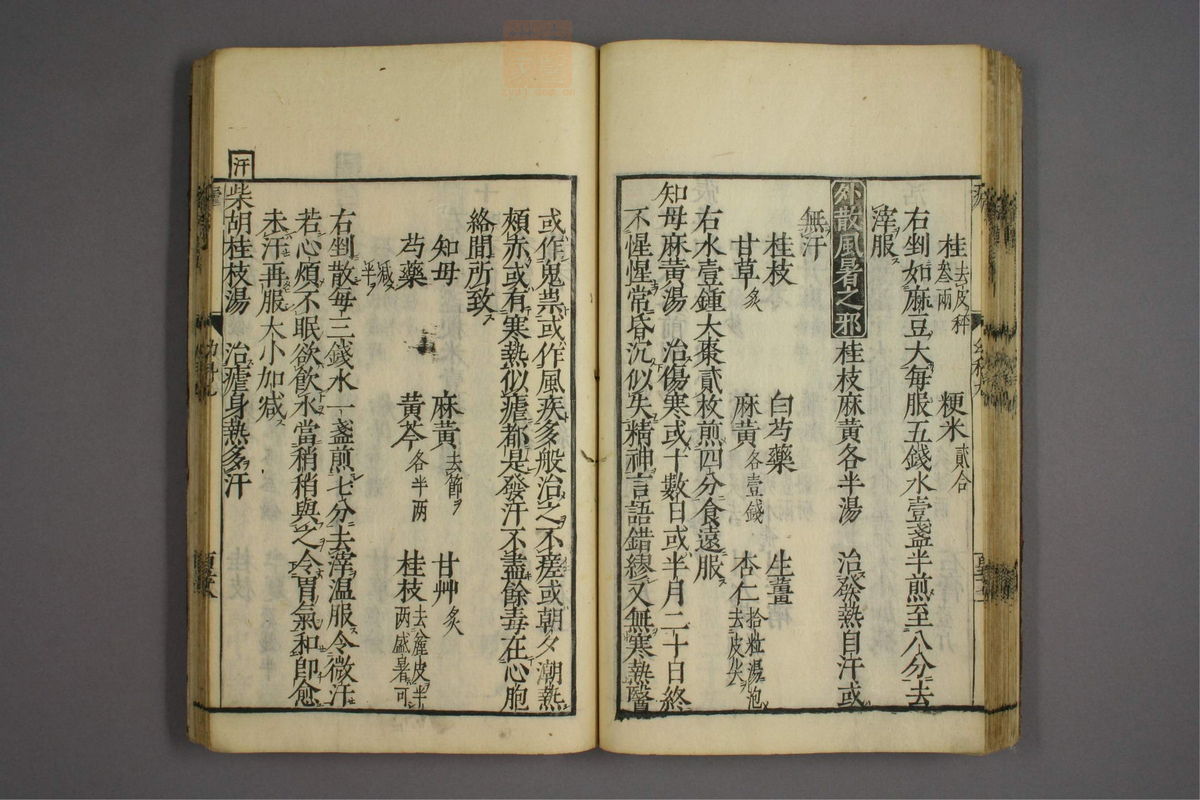 桂去皮秤叁兩　粳米貳合
右剉如麻豆大每服五錢水壹盞半煎至八分去
滓服
外散風暑之邪　桂枝麻黃各半湯　治發熱自汗或
無汗
桂枝　白芍藥　生薑
甘草炙　麻黃各壹錢　杏仁拾粒湯泡去皮尖
右水壹鍾大棗貳枚煎四分食遠服
知母麻黃湯　治傷寒或十數日或半月二十日終
不惺惺常昏沉似失精神言語錯繆又無寒熱醫
或作鬼祟或作風疾多般治之不瘥或朝夕潮熱
頰赤或有寒熱似瘧都是發汗不盡餘毒在心胞
絡間所致
知母　麻黃去節　甘艸炙
芍藥　黃芩各半两　桂枝去麄皮半两盛暑可
减半
右剉散每三錢水一盞煎七分去滓温服令微汗
若心煩不眠欲飲水當稍稍與之令胃氣和卽愈
未汗再服大小加减
汗
柴胡桂枝湯　治瘧身熱多汗